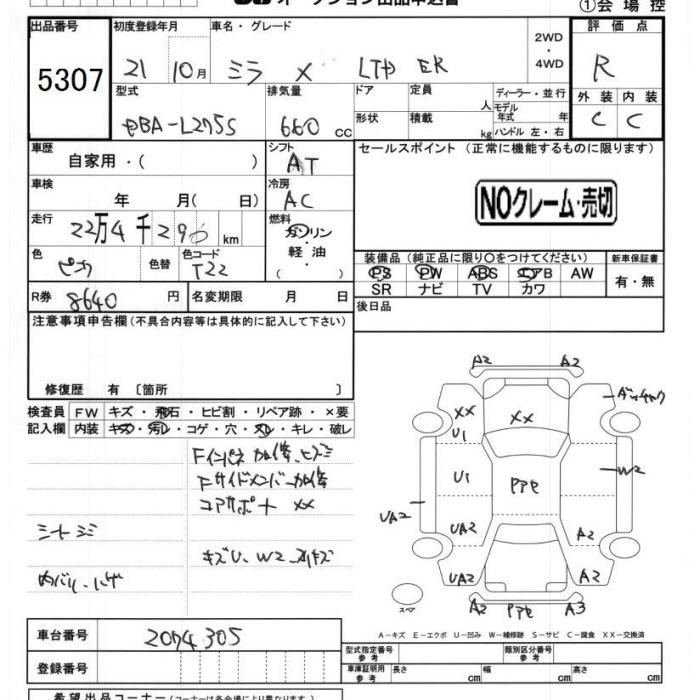 オークション出品申込書
①会場控
出品番号 初度登録年月 車名・グレード 評価点
5307
21 10月 ミラ X LTD 2WD・4WD R
型式 排気量 ドア 定員 人 ディーラー・並行 外装 内装
モデル年式 年
DBA-L275S 660 cc 形状 積載 kg ハンドル 左・右 C C
車歴 シフト セールスポイント (正常に機能するものに限ります)
自家用・( ) AT
車検 冷房
年 月( 日) AC NOクレーム・売切
走行 燃料
22万4千29 km ガソリン・軽油・( )
色 色替 色コード 装備品 (純正品に限り○をつけてください) 新車保証書
T22 PS PW ABS エアB AW 有・無
SR ナビ TV カワ
R券 8640 円 名変期限 月 日 後日品
注意事項申告欄(不具合内容等は具体的に記入して下さい)
修復歴 有 〔箇所 〕
検査員記入欄 FW キズ・飛石・ヒビ割・リペア跡・×要
内装 キズ・汚レ・コゲ・穴・スレ・キレ・破レ
Fインパネ加修、ヒズミ
Fサイドメンバー加修
コアサポート XX
キズU、W2
内バリ、ハゲ
A2 A2
XX XX
U1
U1 PPP W2
UA2 UA2 A2
UA2 A2
A2 PPP A3
スペア
A-キズ E-エクボ U-凹み W-補修跡 S-サビ C-腐食 XX-交換済
車台番号 2074305
登録番号
型式指定番号 参考 類別区分番号 参考
車庫証明用 参考 長さ cm 幅 cm 高さ cm
希望出品コーナー(コーナーは各会場により異なります。)